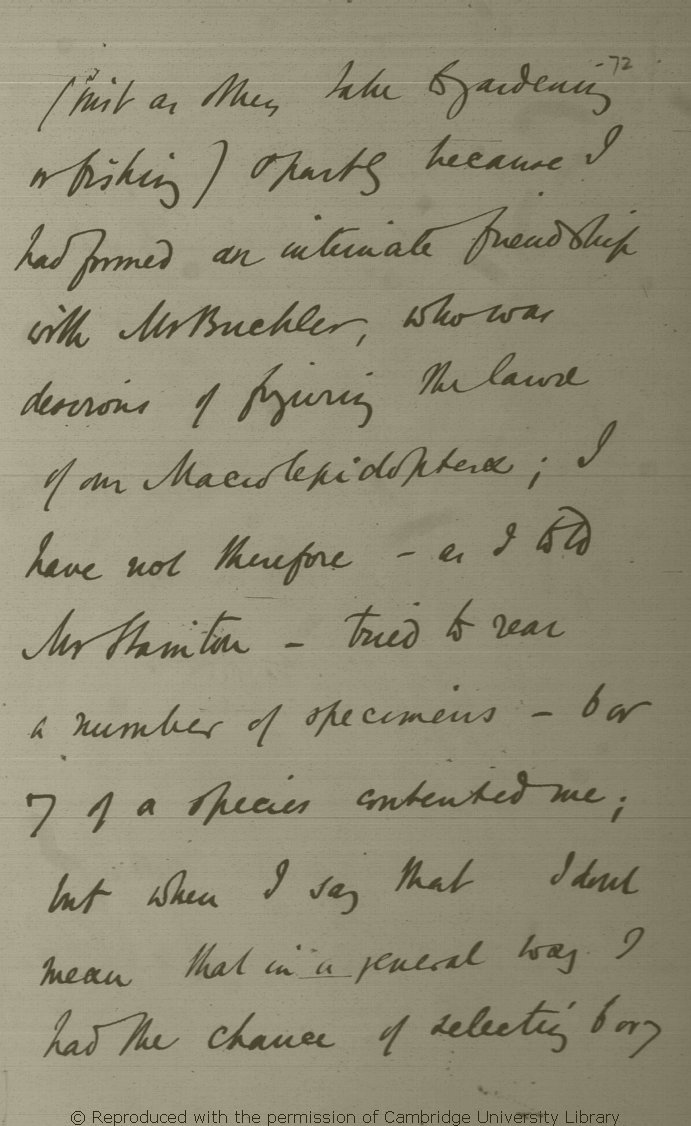 72
(just as others take to gardening
or fishing) & partly because I
had formed an intimate friendship
with Mr Buckler, who was
desirous of figuring the larvæ
of our Macrolepidopteræ; I
have not therefore – as I told
Mr Stainton – tried to rear
a number of specimens – 6 or
7 of a species contented me;
but when I say that I dont
mean that in a general way I
had the chance of selecting 6 or 7
© Reproduced with the permission of Cambridge University Library